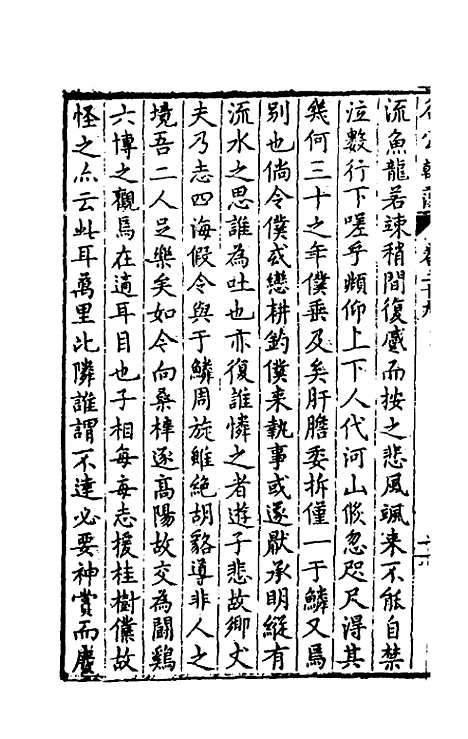 流魚龍若竦稍間復感而按之悲風颯来不能自禁
泣數行下嗟乎頫仰上下人代河山倐忽咫尺得其
幾何三十之年僕乗及矣肝膽委拆僅一于鱗又爲
別也倘令僕或戀耕釣僕来執事或遂厭承明縦有
流水之思誰為吐也亦復誰憐之者遊子悲故郷丈
夫乃志四海假令與于鱗周旋雖絶胡貉導非人之
境吾二人足樂矣如令向桑梓逐高陽故交為鬪鷄
六博之觀焉在適耳目也子相每每志援桂樹儻故
怪之点云此耳萬里比隣誰謂不達必要神賞而